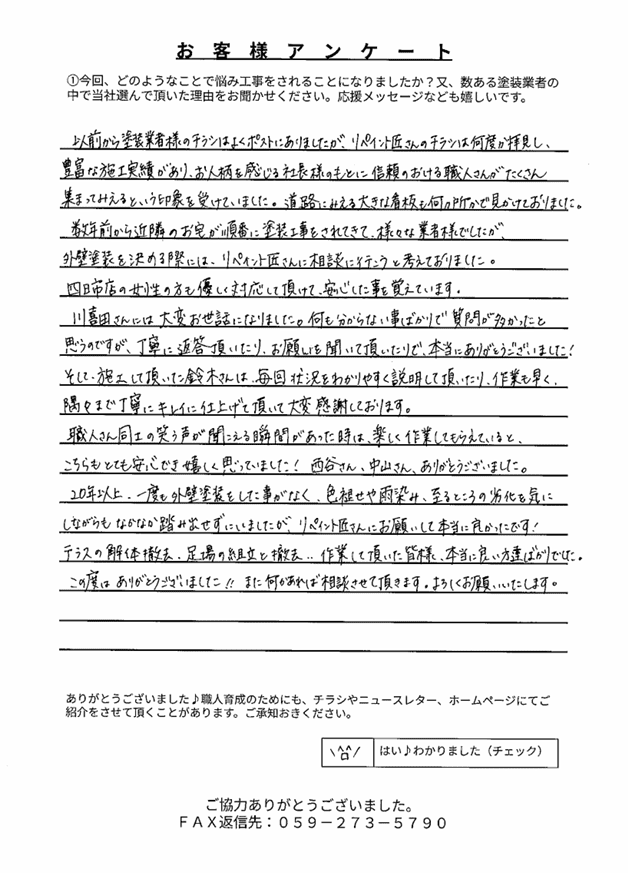 お客様アンケート
①今回、どのようなことで悩み工事をされることになりましたか？又、数ある塗装業者の
中で当社選んで頂いた理由をお聞かせください。応援メッセージなども嬉しいです。
以前から塗装業者様のチラシはよくポストにありましたが、リペイント匠さんのチラシは何度か拝見し、
豊富な施工実績があり、お人柄を感じる社長様のもとに信頼のおける職人さんがたくさん
集まってみえるという印象を受けていました。道路にみえる大きな看板も何カ所かで見かけておりました。
数年前から近隣のお宅が順番に塗装工事をされてきて、様々な業者様でしたが、
外壁塗装を決める際には、リペイント匠さんに相談に行こうと考えておりました。
四日市店の女性の方も優しく対応して頂けて、安心した事を覚えています。
川喜田さんには大変お世話になりました。何も分からない事ばかりで質問が多かったと
思うのですが、丁寧に返答頂いたり、お願いを聞いて頂いたりで、本当にありがとうございました！
そして、施工して頂いた鈴木さんは、毎回状況をわかりやすく説明して頂いたり、作業も早く、
隅々まで丁寧にキレイに仕上げて頂いて大変感謝しております。
職人さん同士の笑う声が聞こえる瞬間があった時は、楽しく作業してもらえていると、
こちらもとても安心でき嬉しく思っていました！西谷さん、中山さん、ありがとうございました。
20年以上、一度も外壁塗装をした事がなく、色褪せや雨染み、至るところの劣化を気に
しながらもなかなか踏み出せずにいましたが、リペイント匠さんにお願いして本当に良かったです！
テラスの解体撤去、足場の組立と撤去‥作業して頂いた皆様、本当に良い方達ばかりでした。
この度はありがとうございました!! また何かあれば相談させて頂きます。よろしくお願いいたします。
ありがとうございました♪職人育成のためにも、チラシやニュースレター、ホームページにてご
紹介をさせて頂くことがあります。ご承知おきください。
はい♪わかりました（チェック）
ご協力ありがとうございました。
ＦＡＸ返信先：０５９－２７３－５７９０